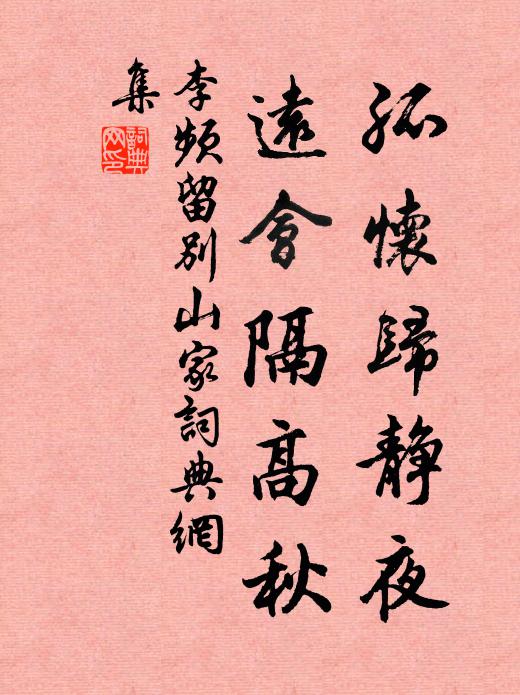 孤懷歸静夜
遠會隔高秋
李頻留別山家詞典網
集
詞典網印